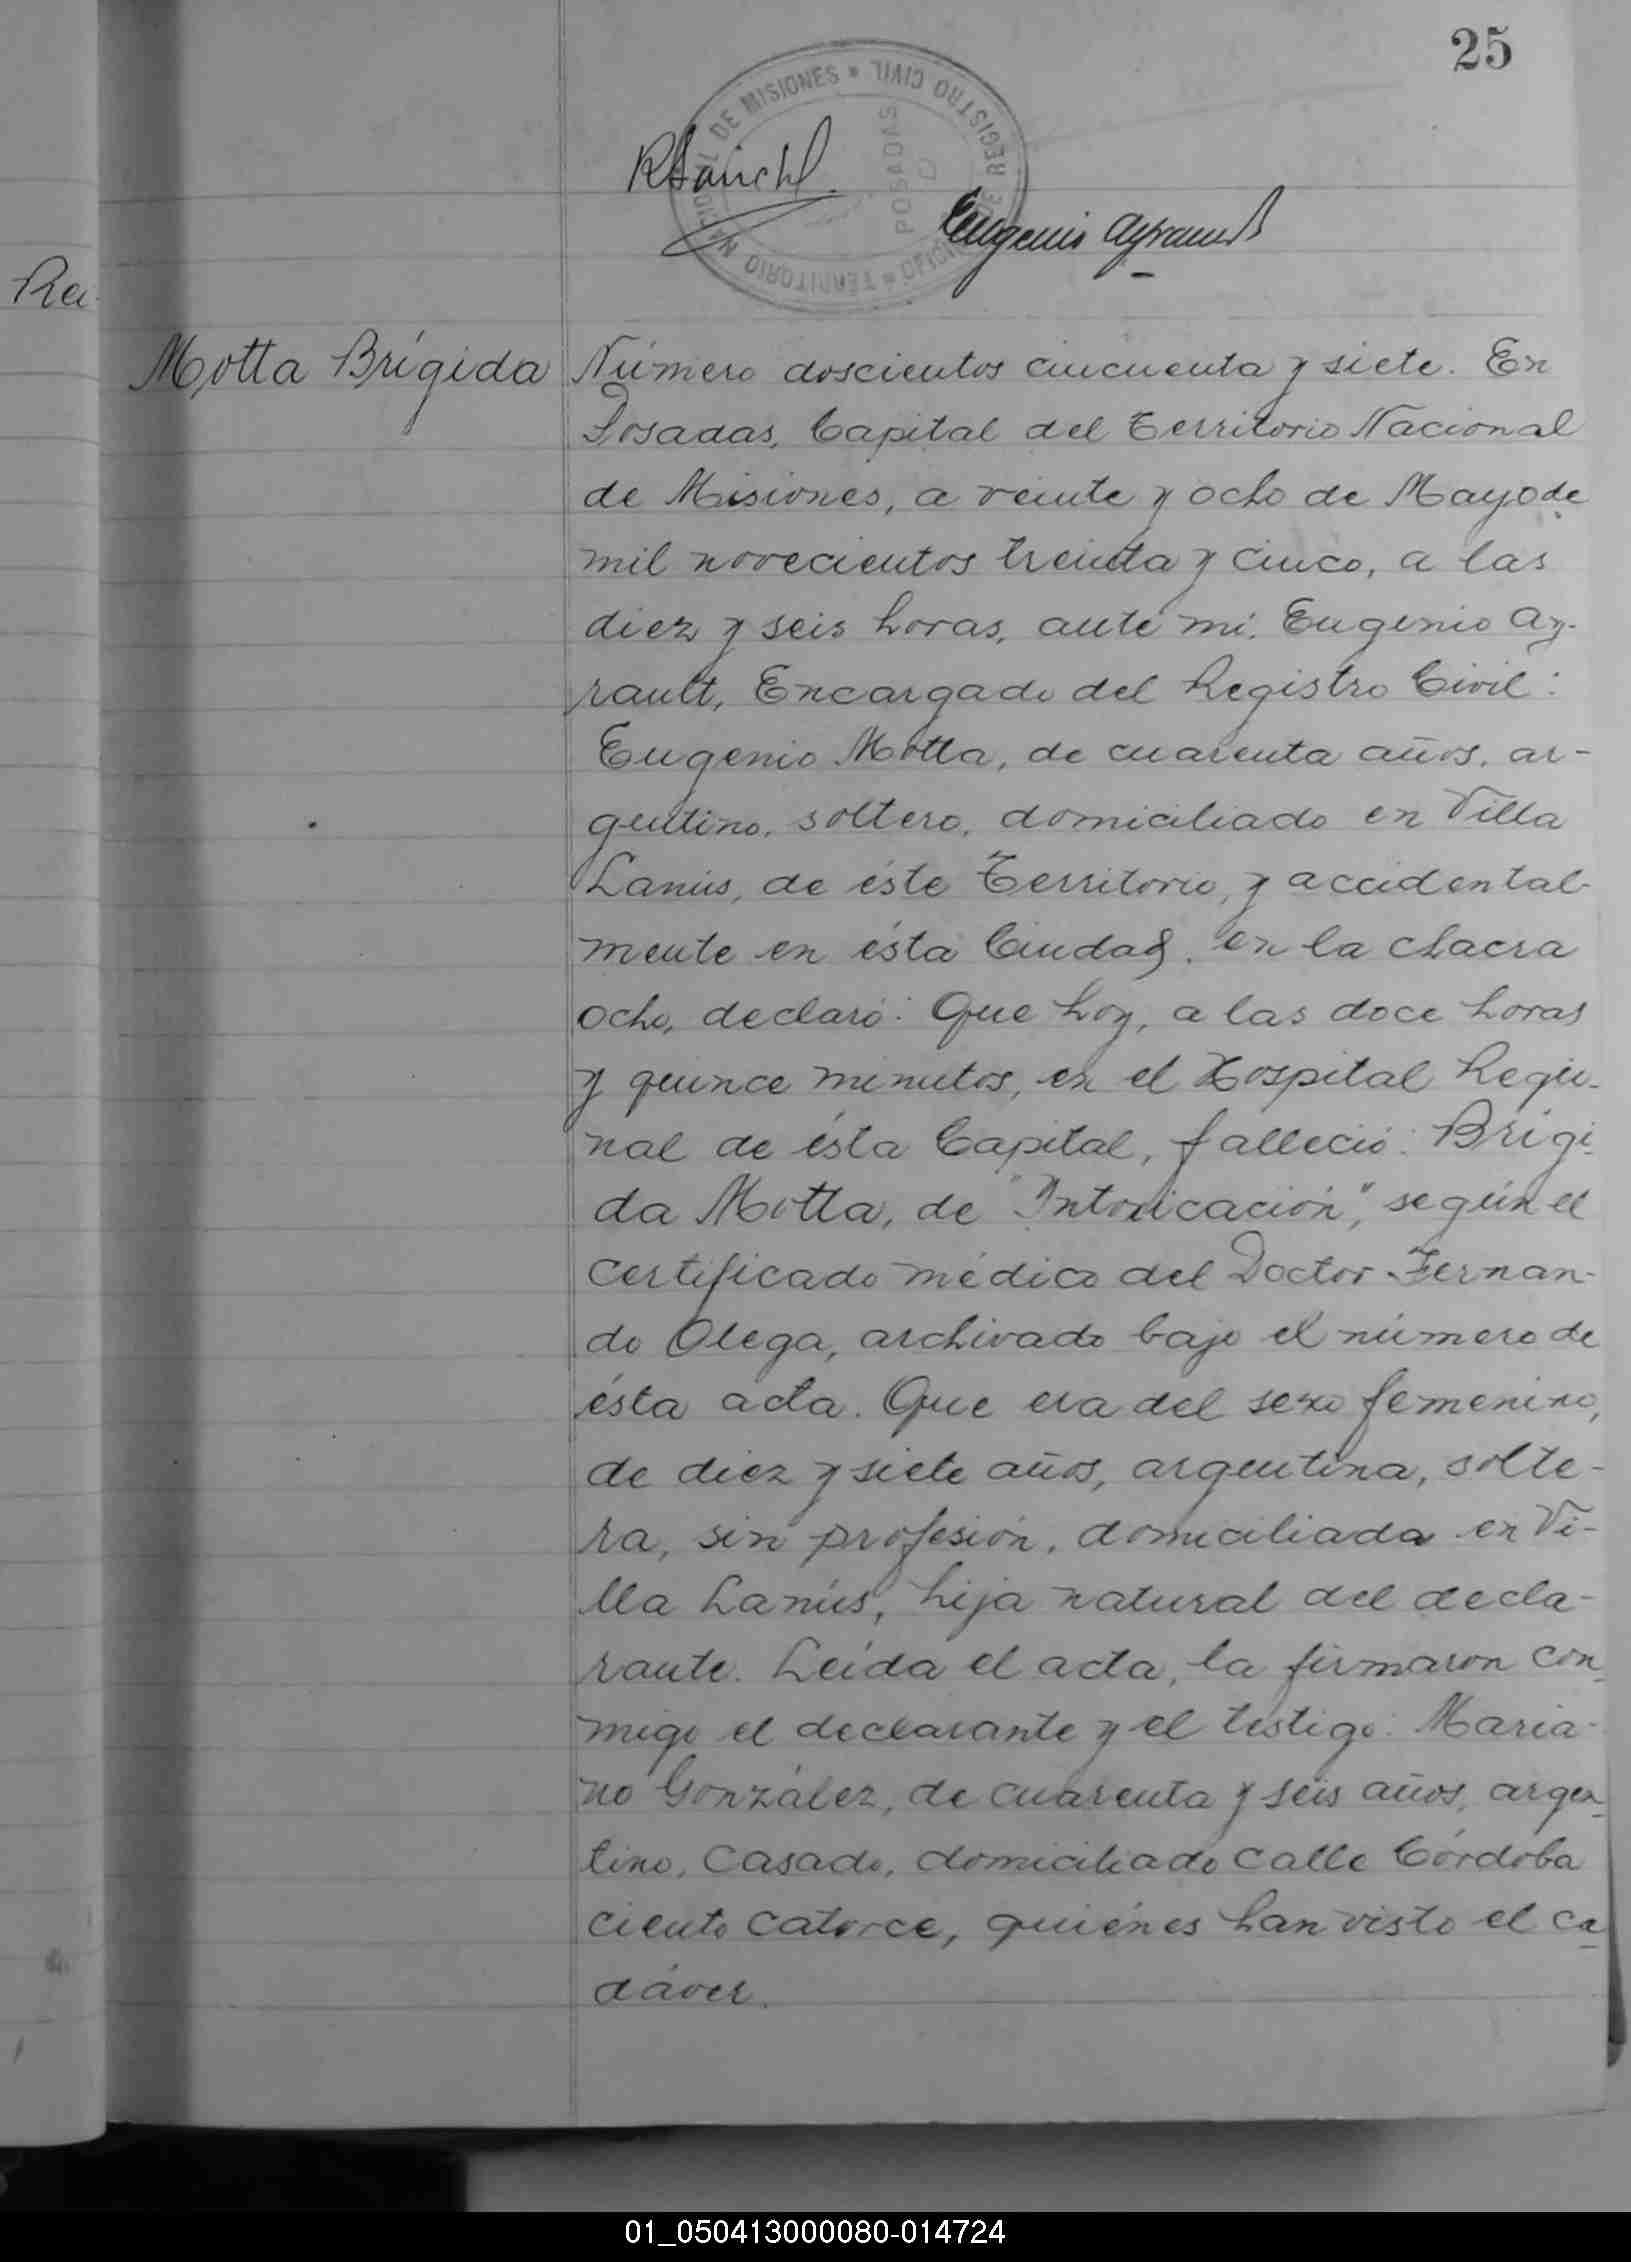 25
REGISTRO CIVIL
TERRITORIO NACIONAL DE MISIONES
POSADAS
Eugenio Ayrault
Motta Brígida
Número doscientos cincuenta y siete. En
Posadas, Capital del Territorio Nacional
de Misiones, a veinte y ocho de Mayo de
mil novecientos treinta y cinco, a las
diez y seis horas, ante mí, Eugenio Ay-
rault, Encargado del Registro Civil:
Eugenio Motta, de cuarenta años, ar-
gentino, soltero, domiciliado en Villa
Lanús, de éste Territorio, y accidental-
mente en ésta Ciudad, en la chacra
ocho, declaró: Que hoy, a las doce horas
y quince minutos, en el Hospital Regio-
nal de ésta Capital, falleció: Brígi-
da Motta, de "Intoxicación", según el
certificado médico del Doctor Fernan-
do Olega, archivado bajo el número de
ésta acta. Que era del sexo femenino,
de diez y siete años, argentina, solte-
ra, sin profesión, domiciliada en Vi-
lla Lanús, hija natural del decla-
rante. Leída el acta, la firmaron con-
migo el declarante y el testigo: Maria-
no González, de cuarenta y seis años, argen-
tino, casado, domiciliado calle Córdoba
ciento catorce, quiénes han visto el ca-
dáver.
01_050413000080-014724